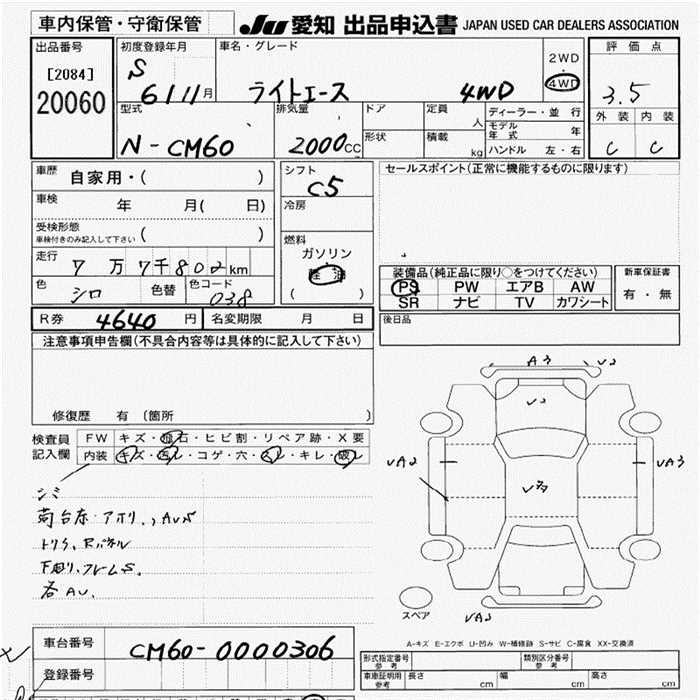 車内保管・守衛保管
JU 愛知 出品申込書 JAPAN USED CAR DEALERS ASSOCIATION
出品番号
[2084]
20060
初度登録年月
S
61 11月
車名・グレード
ライトエース 4WD
2WD
4WD
評価点
3.5
外装 内装
C C
型式
N-CM60
排気量
2000cc
ドア
形状
定員
人
積載
kg
ディーラー・並行
モデル年式 年
ハンドル 左・右
車歴 自家用・( )
車検 年 月( 日)
受検形態
車検付きのみ記入して下さい ( )
走行 7万7千802km
色 シロ 色替 色コード 038
シフト
C5
冷房
燃料
ガソリン
軽油
( )
セールスポイント(正常に機能するものに限ります)
装備品(純正品に限り○をつけてください)
PS PW エアB AW
SR ナビ TV カワシート
新車保証書
有・無
R券 4640円 名変期限 月 日
後日品
注意事項申告欄(不具合内容等は具体的に記入して下さい)
修復歴 有(箇所 )
検査員記入欄
FW キズ・飛石・ヒビ割・リペア跡・X要
内装 キズ・汚レ・コゲ・穴・スレ・キレ・破レ
シミ
荷台赤・アオリ、AUS
トリイ、Rパネル
下廻り、フレームS、
各AU、
A3
U2
UA2
UA3
UA2
スペア
A-キズ E-エクボ U-凹み W-補修跡 S-サビ C-腐食 XX-交換済
車台番号 CM60-0000306
登録番号
形式指定番号 参考
類別区分番号 参考
車庫証明用 参考 長さ cm 幅 cm 高さ cm